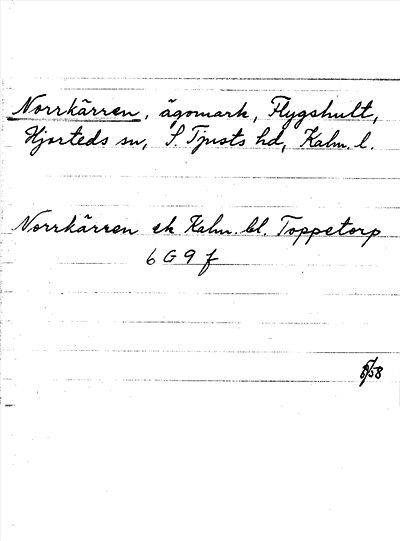 Norrkärren, ägomark, Flygshult,
Hjorteds sn, S. Tjusts hd, Kalm. l.
Norrkärren ek Kalm. bl. Toppetorp
6 G 9 f